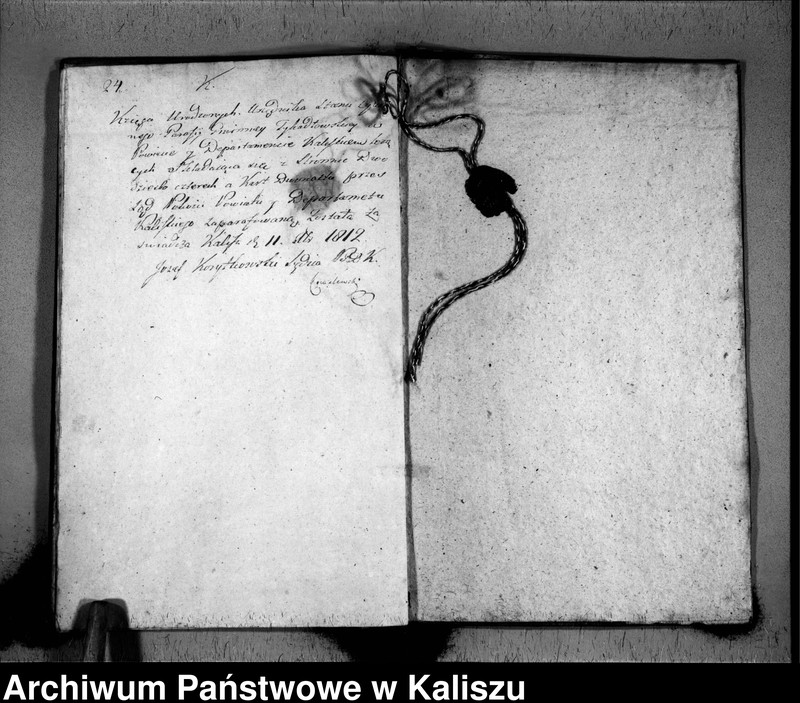 24.
K.
Księga Urodzonych Urzędnika Stanu Cy
nego Parafij Gminney
Powiecie y Departamencie Kaliskiem
cych Składaiąca się z Stronnic Dwu
dziestu czterech a Kart Dwunastu przez
Sąd Pokoiu Powiatu y Departamentu
Kaliskiego zaparafowaną została za
świadcza Kalisz d 11. 1812.
Jozef Korytkowski Sędzia P. K.
Archiwum Państwowe w Kaliszu